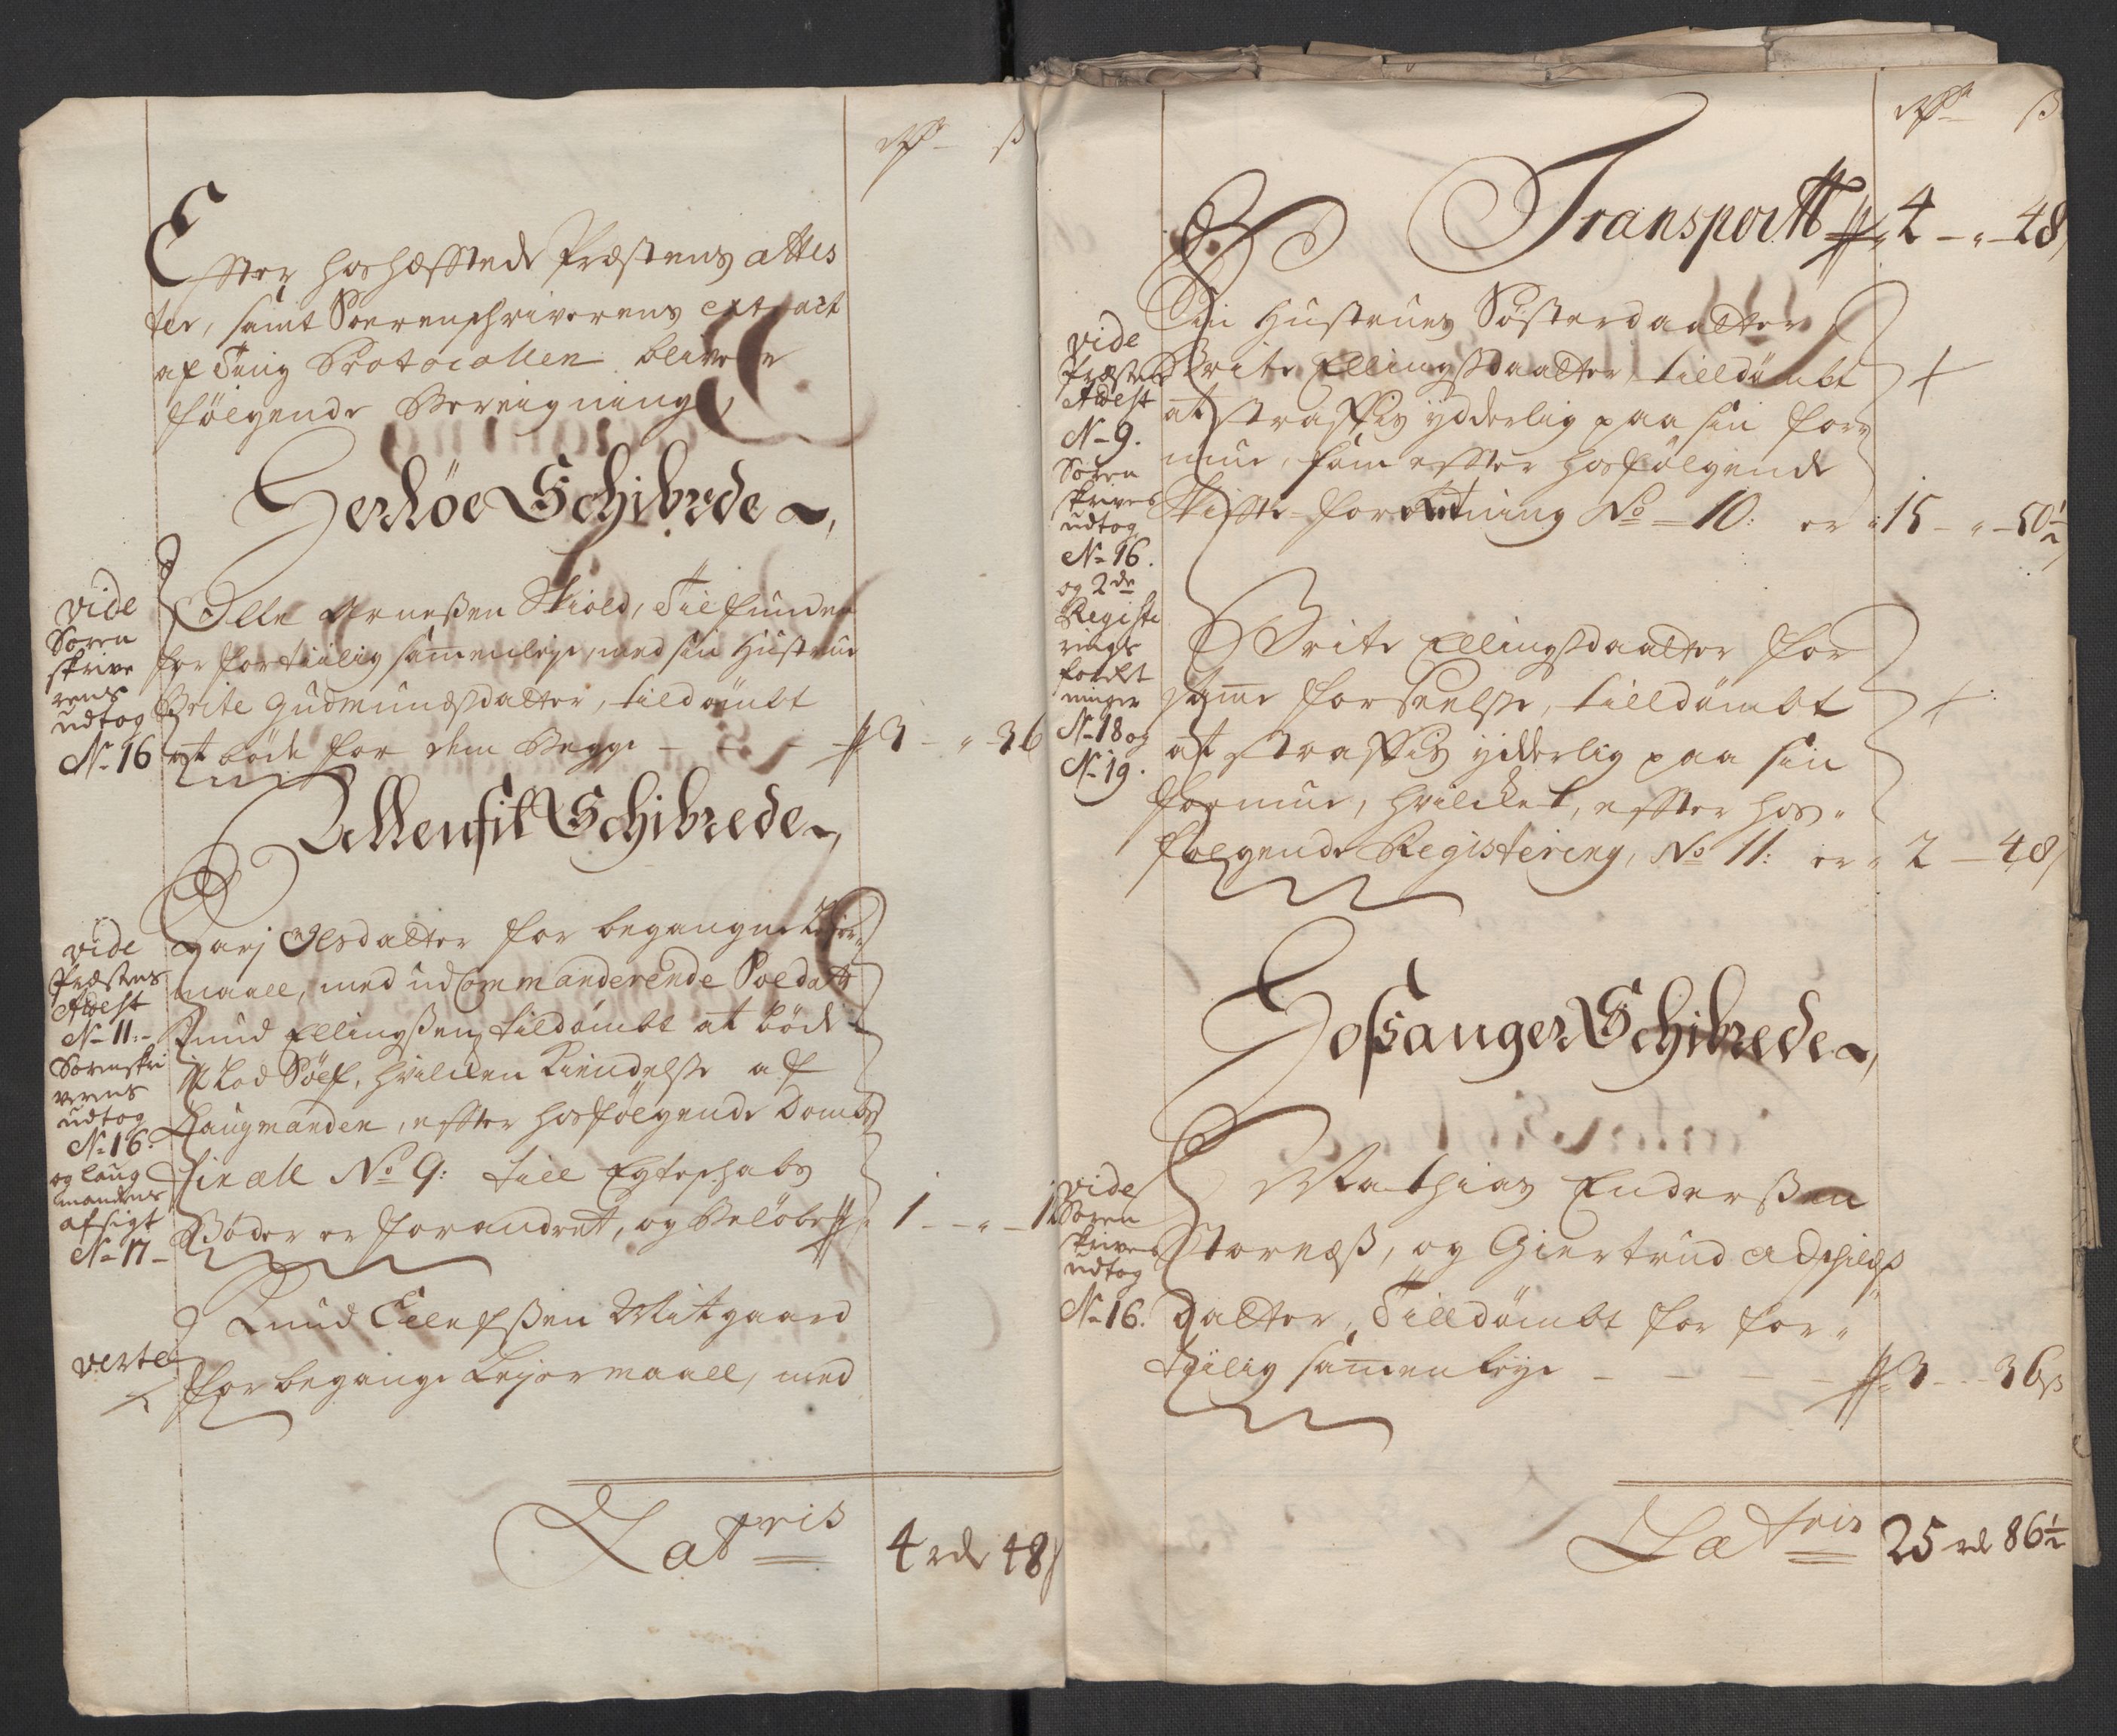 Rdr ß
Effter hoshæfftede Præstens attes
ter, samt Soerenschriverens extract
af Ting Protocollen blever
følgende Bereigning
Herlöe Schibrede
vide
Soren
skrive
rens
udtog
No 16
Olle Arneßen Skiold, Tilfunden
for fortiilig sammenleye, med sin Hustrue
Brite Gudmundsdatter, tildømbt
at bøde for dem Begge - - - 3 - " - 36
Allenfit Schibrede
vide
Præstens
Attest
No 11:
Sorenskri
verens
udtog
No 16.
og laug
mandens
afsigt
No 17
Marj Olsdatter for begangne Leyer-
maall, med udCommanderende Soldatt
Knud Ellingßen, tildømbt at bøde
12 Lod Sölf, hvilcken Kiendelse af
Laugmanden, effter hosfølgende Domb
sinall No 9: till Egteschabs
Bøder er forandret, og Beløber 1 - " - 12
Knud Ellefsßen Mitgaard
for begange Lejermaall, med
verte
Latris 4 rdr 48 ß
Rdr ß
Transportt 4 - " - 48
vide
Præstens
Attest
No 9.
Soren
skrivers
udtog
No 16.
og 2de
Registe
rings
forret
ninger
No 18 og
No 19.
Sin Hustrues Søsterdaatter
Brite Ellingsdaatter, tilldømbt
at straffis ydderlig paa sin for-
mue, som effter hosfølgende
Skiffte-forretning No 10: er 15 - " - 50½
Brite Ellingsdaatter for
samme forseelse, tilldømbt
at straffis ydderlig paa sin
formue, hvilcket, effter hos-
følgende Registering, No 11: er 2 - 48
Hosanger Schibrede
vide
Soren
skrivers
udtog
No 16.
Mathias Enderßen
Stornæß, og Giertrud Adschilds
datter, Tilldømbt for for-
tiilig sammenleye - - - - 3 - - 36 ß
Latris 25 rdr 86½